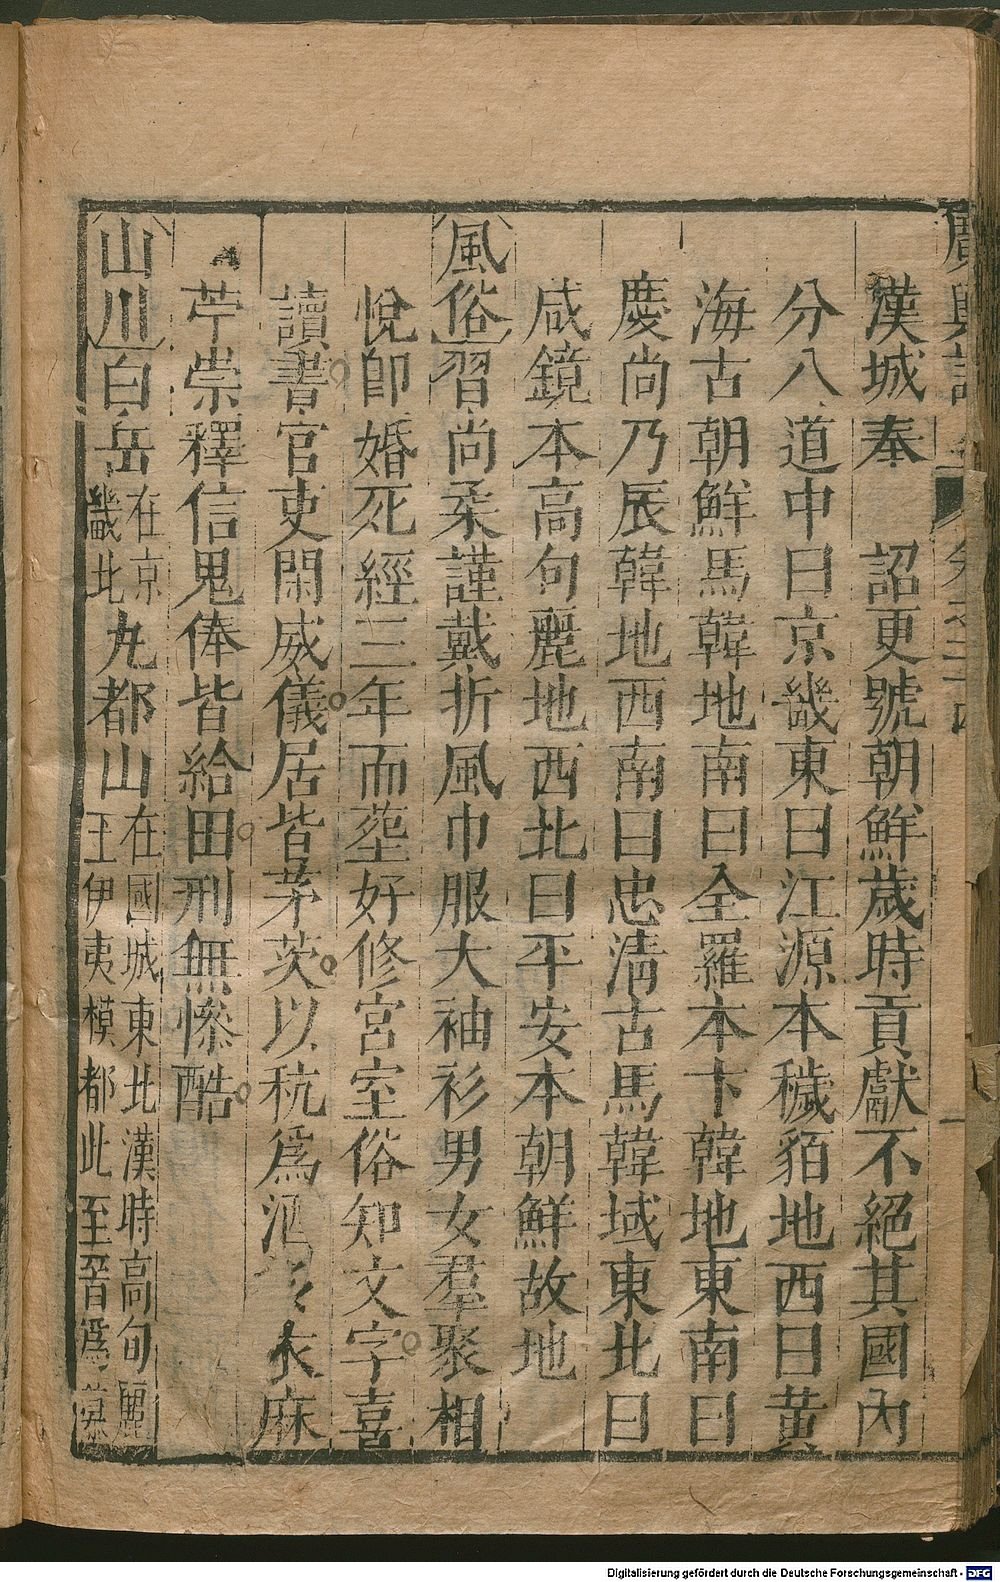 廣輿記
漢城奉　詔更號朝鮮歲時貢獻不絕其國內
分八道中曰京畿東曰江源本穢貊地西曰黃
海古朝鮮馬韓地南曰全羅本卞韓地東南曰
慶尚乃辰韓地西南曰忠淸古馬韓域東北曰
咸鏡本高句麗地西北曰平安本朝鮮故地
風俗習尚柔謹戴折風巾服大袖衫男女羣聚相
悅卽婚死經三年而葬好修宮室俗知文字喜
讀書官吏閑威儀居皆茅茨以秔爲酒衣麻
苧崇釋信鬼俸皆給田刑無慘酷
山川白岳在京畿北九都山在國城東北漢時高句麗王伊夷模都此至晉爲慕
Digitalisierung gefördert durch die Deutsche Forschungsgemeinschaft - DFG